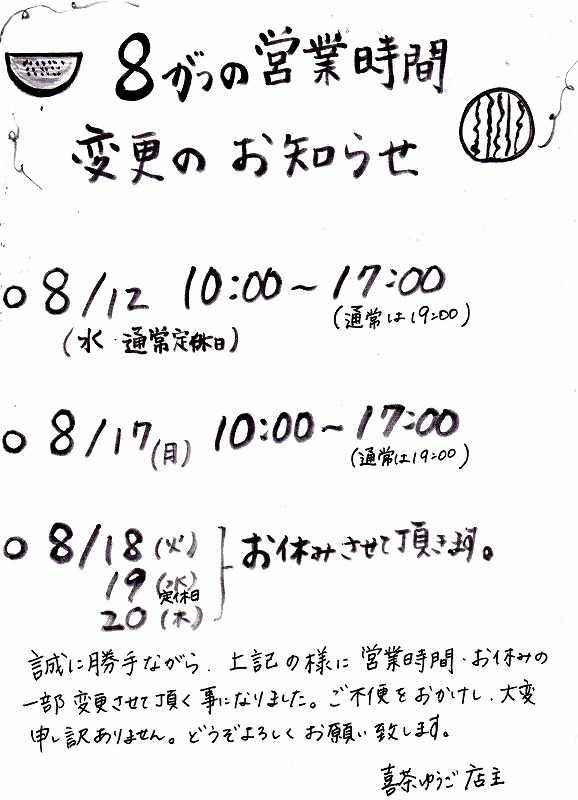 8がつの営業時間
変更のお知らせ
○ 8/12 10:00～17:00
(通常は19:00)
(水 通常定休日)
○ 8/17(月) 10:00～17:00
(通常は19:00)
○ 8/18(火) お休みさせて頂きます。
19(水)
定休日
20(木)
誠に勝手ながら、上記の様に営業時間・お休みの
一部変更させて頂く事になりました。ご不便をおかけし、大変
申し訳ありません。どうぞよろしくお願い致します。
喜茶ゆうご店主